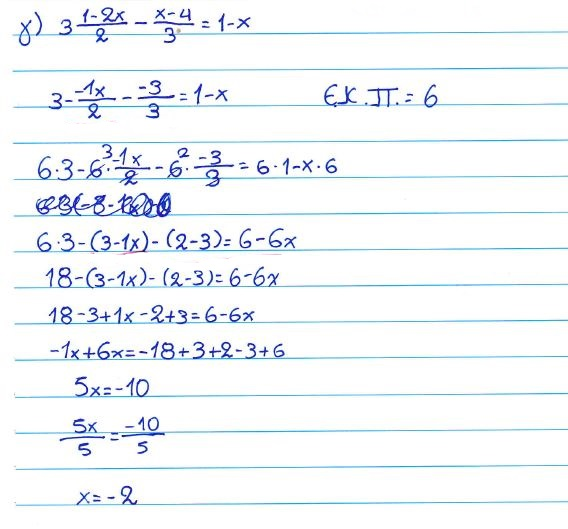 γ) 3 (1-2x)/2 - (x-4)/3 = 1-x
3 - (-1x)/2 - (-3)/3 = 1-x Ε.Κ.Π. = 6
6·3 - 6³·(-1x)/2 - 6²·(-3)/3 = 6·1-x·6
6·3-(3-1x)-(2-3)=6-6x
18-(3-1x)-(2-3)=6-6x
18-3+1x-2+3=6-6x
-1x+6x=-18+3+2-3+6
5x=-10
5x/5 = -10/5
x=-2